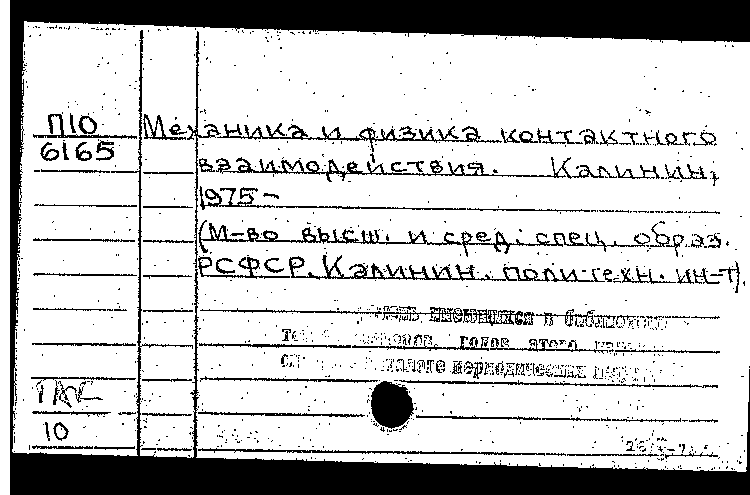 П10
6165
Механика и физика контактного
взаимодействия. Калинин,
1975-
(М-во высш. и сред. спец. образ.
РСФСР. Калинин. политехн. ин-т).
имеющихся в библиотеке
томов, годов этого
каталоге периодических
10